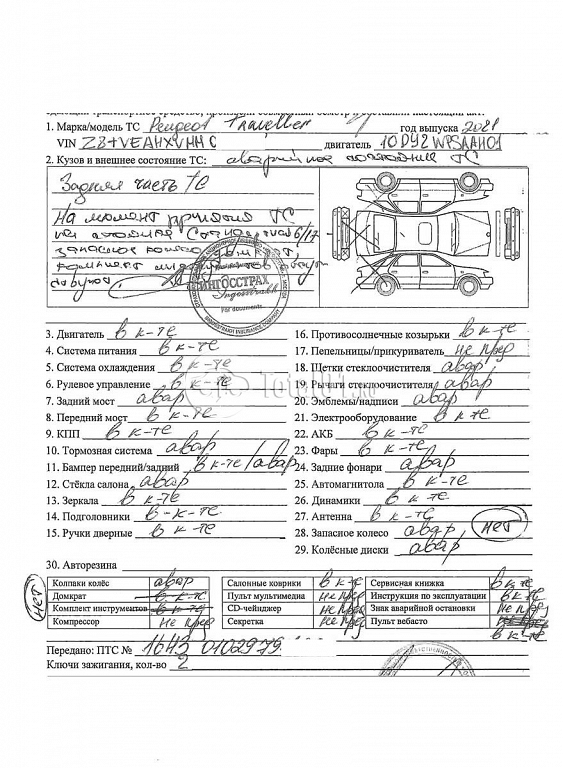 1. Марка/модель ТС Peugeot Traveller год выпуска 2021
VIN Z8TVEAHXVMM C двигатель 10DY42 WPSAAH01
2. Кузов и внешнее состояние ТС: аварийное состояние ТС
Задняя часть ТС
На момент ТС
запасное колесо
ИНГОССТРАХ
Ingosstrakh
For documents
3. Двигатель в к-те
16. Противосолнечные козырьки в к-те
4. Система питания в к-те
17. Пепельницы/прикуриватель не пред
5. Система охлаждения в к-те
18. Щетки стеклоочистителя авар
6. Рулевое управление в к-те
19. Рычаги стеклоочистителя авар
7. Задний мост авар
20. Эмблемы/надписи авар
8. Передний мост в к-те
21. Электрооборудование в к-те
9. КПП в к-те
22. АКБ в к-те
10. Тормозная система авар
23. Фары в к-те
11. Бампер передний/задний в к-те/авар
24. Задние фонари авар
12. Стёкла салона авар
25. Автомагнитола в к-те
13. Зеркала в к-те
26. Динамики в к-те
14. Подголовники в к-те
27. Антенна в к-те
15. Ручки дверные в к-те
28. Запасное колесо авар, нет
29. Колёсные диски авар
30. Авторезина
Колпаки колёс авар Салонные коврики в к-те Сервисная книжка в к-те
нет Домкрат в к-те Пульт мультимедиа не пред Инструкция по эксплуатации в к-те
Комплект инструментов в к-те CD-чейнджер не пред Знак аварийной остановки не пред
Компрессор не пред Секретка не пред Пульт вебасто не пред
в к-те
Передано: ПТС № 16430102979
Ключи зажигания, кол-во 2